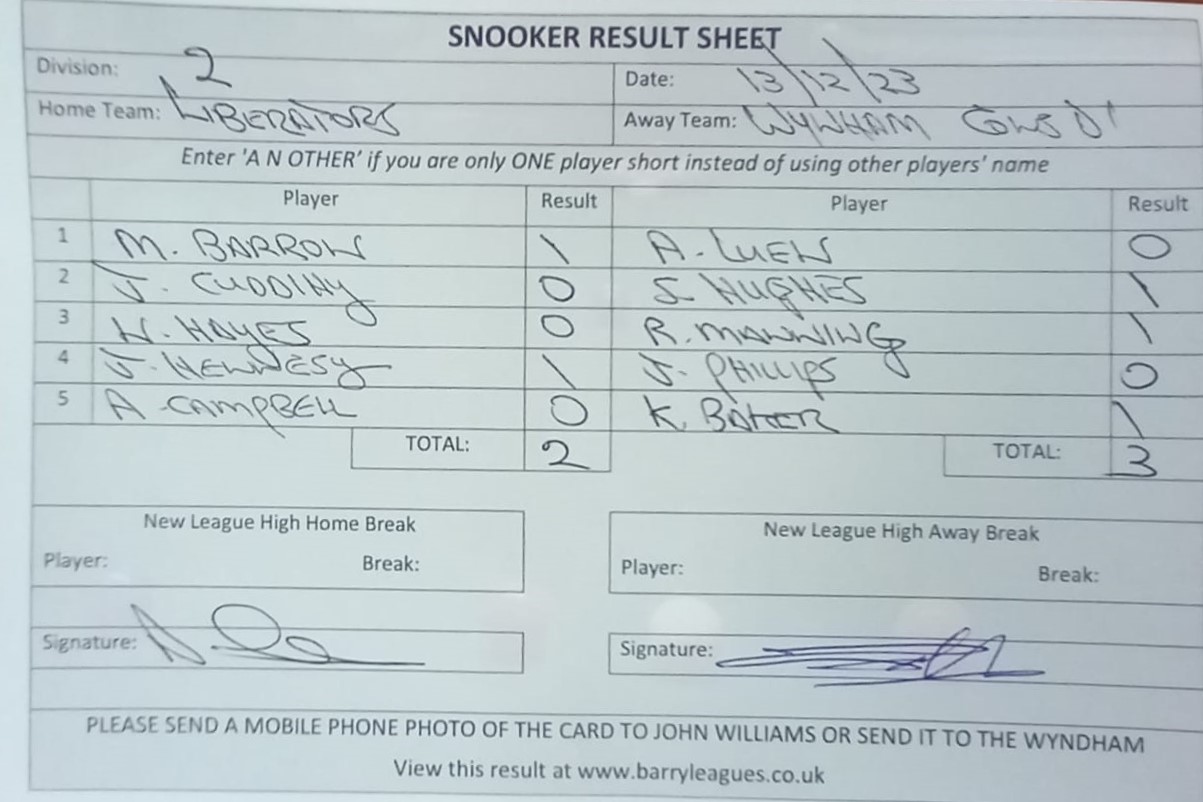 SNOOKER RESULT SHEET
Division: 2 Date: 13/12/23
Home Team: LIBERATORS Away Team: WYNHAM CONS D'
Enter 'A N OTHER' if you are only ONE player short instead of using other players' name
Player Result Player Result
1 M. BARROW 1 A. LUEN 0
2 J. CUDDIHY 0 S. HUGHES 1
3 N. HAYES 0 R. MANNING 1
4 J. HENNESY 1 J. PHILLIPS 0
5 A. CAMPBELL 0 K. BAKER 1
TOTAL: 2 TOTAL: 3
New League High Home Break New League High Away Break
Player: Break: Player: Break:
Signature: Signature:
PLEASE SEND A MOBILE PHONE PHOTO OF THE CARD TO JOHN WILLIAMS OR SEND IT TO THE WYNDHAM
View this result at www.barryleagues.co.uk